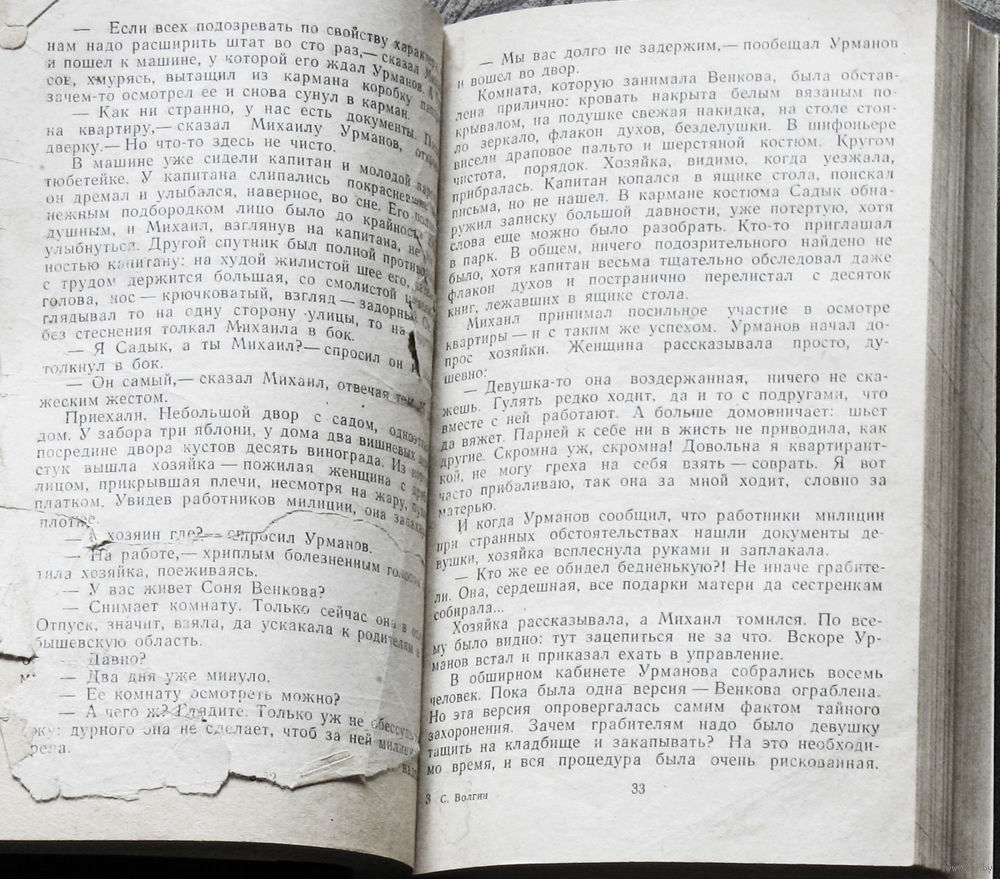 — Если всех подозревать по свойству характера,
нам надо расширить штат во сто раз,— сказал
и пошел к машине, у которой его ждал Урманов. А
сое, хмурясь, вытащил из кармана коробку
зачем-то осмотрел ее и снова сунул в карман.
— Как ни странно, у нас есть документы.
на квартиру,— сказал Михаилу Урманов,
дверку.— Но что-то здесь не чисто.
В машине уже сидели капитан и молодой
тюбетейке. У капитана слипались
он дремал и улыбался, наверное, во сне. Его
нежным подбородком лицо было до крайности
душным, и Михаил, взглянув на капитана, не
улыбнуться. Другой спутник был полной
ностью капитану: на худой жилистой шее его,
с трудом держится большая, со смолистой
голова, нос — крючковатый, взгляд — задорный.
глядывал то на одну сторону улицы, то на
без стеснения толкал Михаила в бок.
— Я Садык, а ты Михаил?— спросил он и
толкнул в бок.
— Он самый,— сказал Михаил, отвечая тем
жеским жестом.
Приехали. Небольшой двор с садом,
дом. У забора три яблони, у дома два вишневых
посредине двора кустов десять винограда. Из
стук вышла хозяйка — пожилая женщина с
лицом, прикрывшая плечи, несмотря на жару,
платком. Увидев работников милиции, она
плотже.
— А хозяин где?— спросил Урманов.
— На работе,— хриплым болезненным голосом
тила хозяйка, поеживаясь.
— У вас живет Соня Венкова?
— Снимает комнату. Только сейчас она в
Отпуск, значит, взяла, да ускакала к родителям в
бышевскую область.
— Давно?
— Два дня уже минуло.
— Ее комнату осмотреть можно?
— А чего ж? Глядите. Только уж не
жу: дурного она не сделает, чтоб за ней
рела.
— Мы вас долго не задержим,— пообещал Урманов
и вошел во двор.
Комната, которую занимала Венкова, была обстав-
лена прилично: кровать накрыта белым вязаным по-
крывалом, на подушке свежая накидка, на столе стоя-
ло зеркало, флакон духов, безделушки. В шифоньере
висели драповое пальто и шерстяной костюм. Кругом
чистота, порядок. Хозяйка, видимо, когда уезжала,
прибралась. Капитан копался в ящике стола, поискал
письма, но не нашел. В кармане костюма Садык обна-
ружил записку большой давности, уже потертую, хотя
слова еще можно было разобрать. Кто-то приглашал
в парк. В общем, ничего подозрительного найдено не
было, хотя капитан весьма тщательно обследовал даже
флакон духов и постранично перелистал с десяток
книг, лежавших в ящике стола.
Михаил принимал посильное участие в осмотре
квартиры — и с таким же успехом. Урманов начал до-
прос хозяйки. Женщина рассказывала просто, ду-
шевно:
— Девушка-то она воздержанная, ничего не ска-
жешь. Гулять редко ходит, да и то с подругами, что
вместе с ней работают. А больше домовничает: шьет
да вяжет. Парней к себе ни в жисть не приводила, как
другие. Скромна уж, скромна! Довольна я квартирант-
кой, не могу греха на себя взять — соврать. Я вот
часто прибаливаю, так она за мной ходит, словно за
матерью.
И когда Урманов сообщил, что работники милиции
при странных обстоятельствах нашли документы де-
вушки, хозяйка всплеснула руками и заплакала.
— Кто же ее обидел бедненькую?! Не иначе грабите-
ли. Она, сердешная, все подарки матери да сестренкам
собирала...
Хозяйка рассказывала, а Михаил томился. По все-
му было видно: тут зацепиться не за что. Вскоре Ур-
манов встал и приказал ехать в управление.
В обширном кабинете Урманова собрались восемь
человек. Пока была одна версия — Венкова ограблена.
Но эта версия опровергалась самим фактом тайного
захоронения. Зачем грабителям надо было девушку
тащить на кладбище и закапывать? На это необходи-
мо время, и вся процедура была очень рискованная.
3 С. Волгин
33